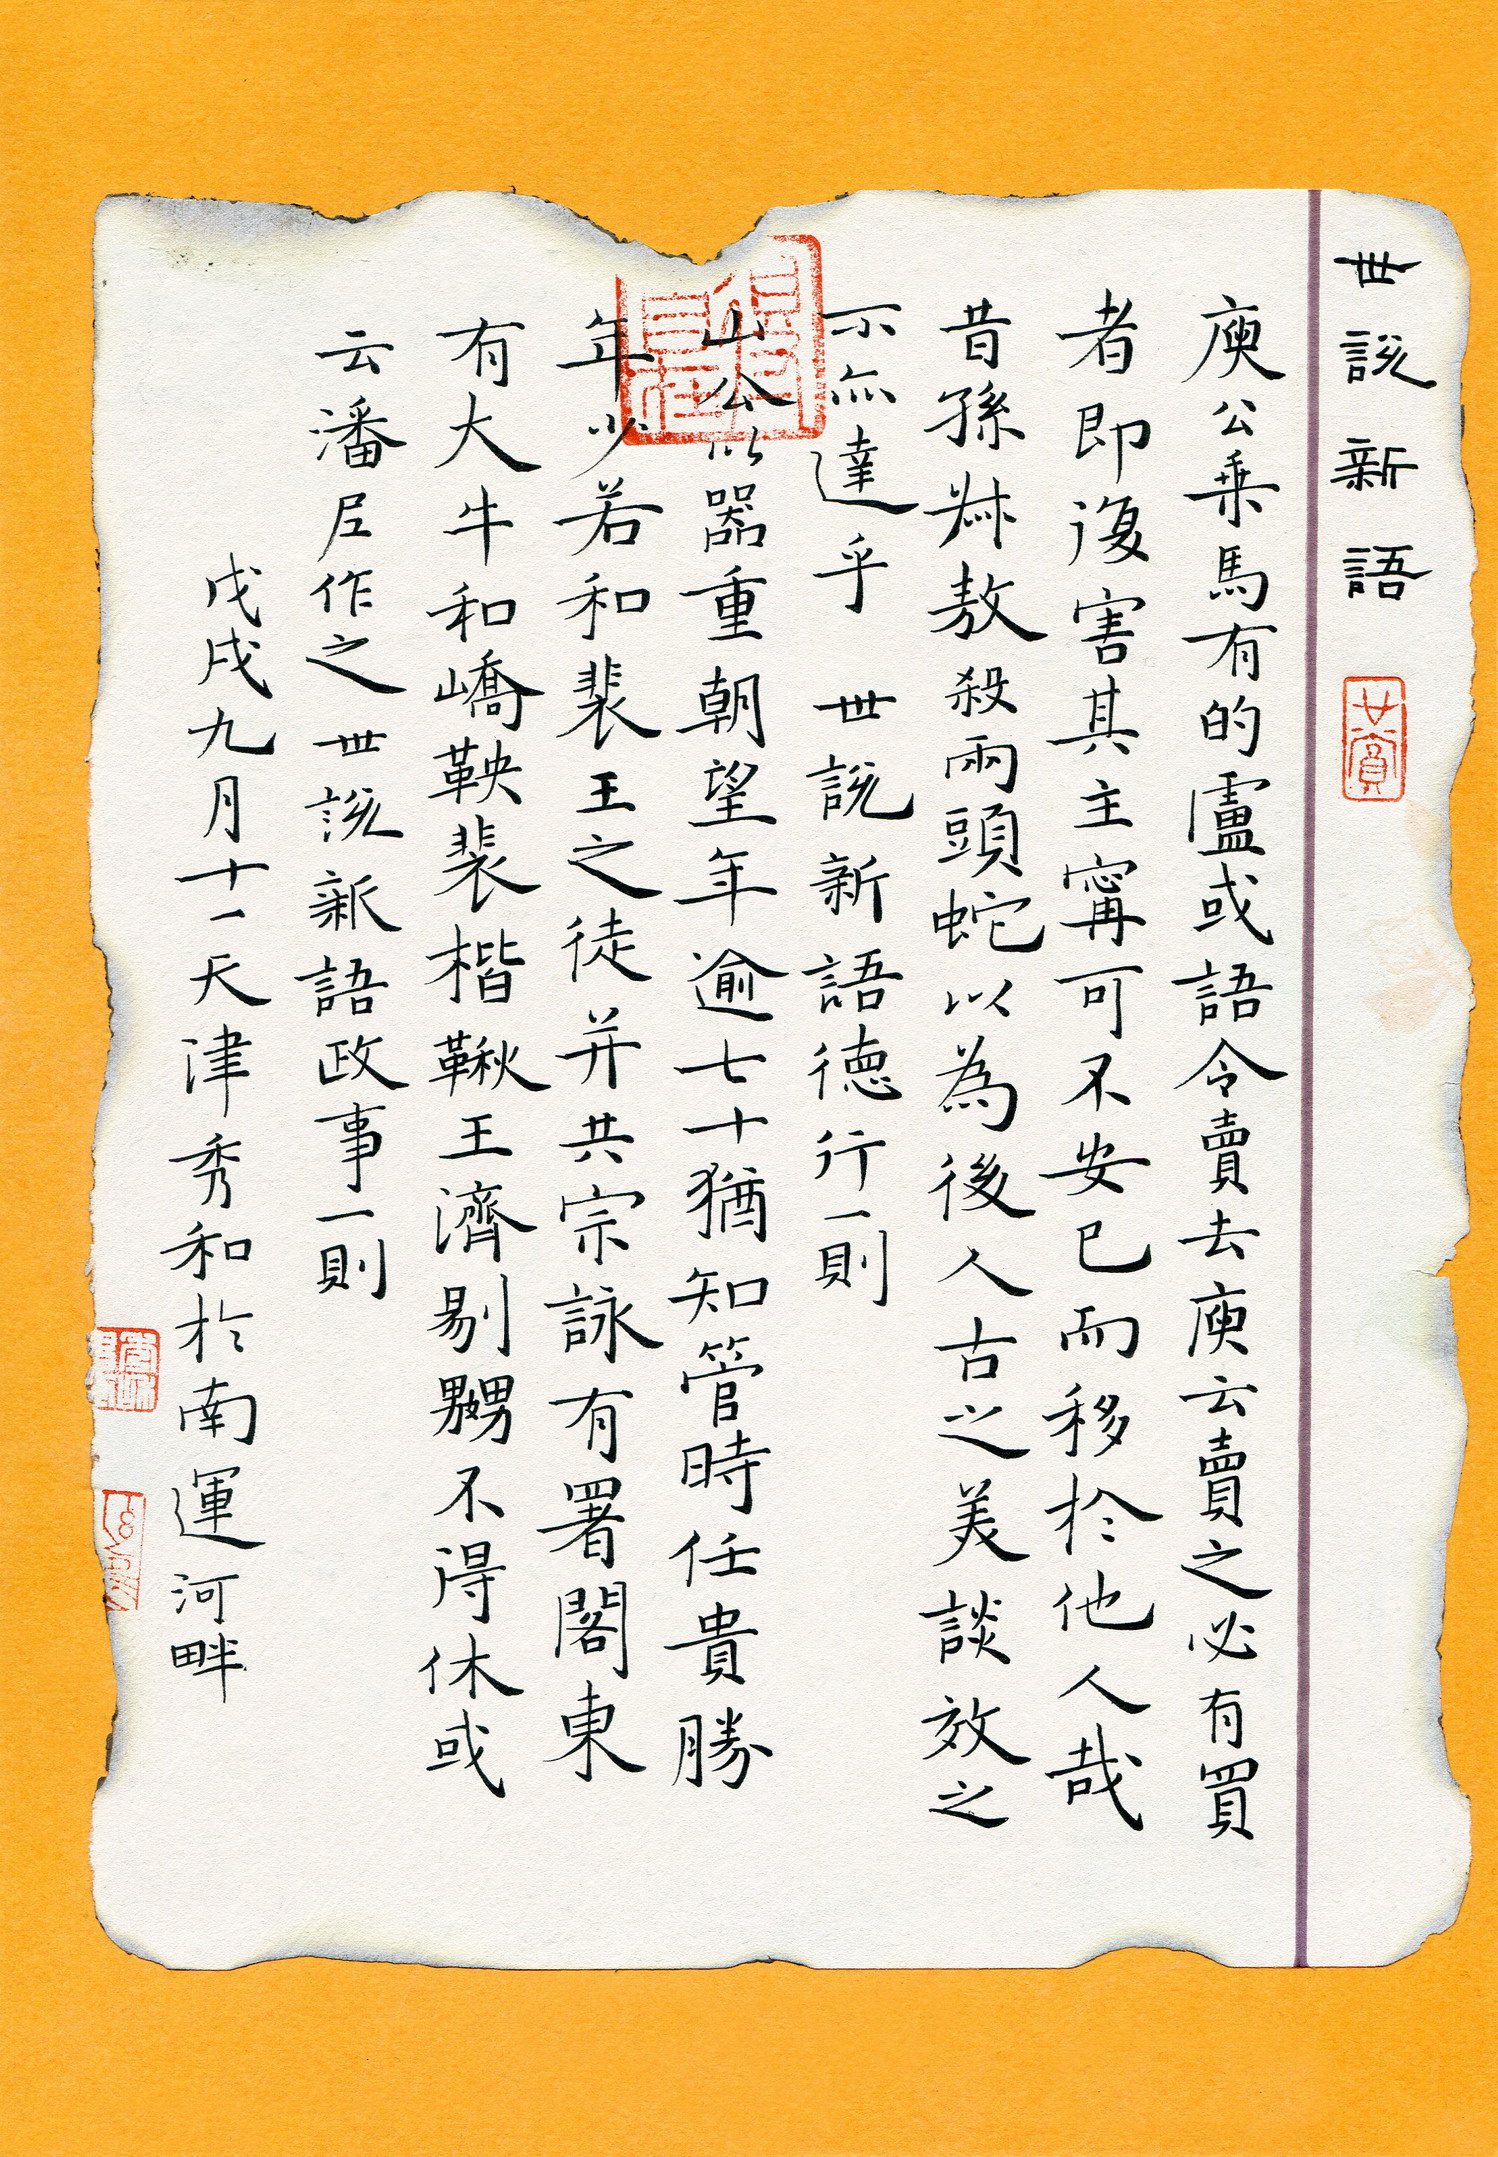 世說新語
庾公乗馬有的盧或語令賣去庾云賣之必有買
者即復害其主寗可不安已而移於他人哉
昔孫叔敖殺兩頭蛇以為後人古之美談效之
不亦達乎 世說新語德行一則
山公以器重朝望年逾七十猶知管時任貴勝
年少若和裴王之徒并共宗詠有署閣東
有大牛和嶠鞅裴楷鞦王濟剔嬲不得休或
云潘尼作之 世說新語政事一則
戊戌九月十一天津秀和於南運河畔